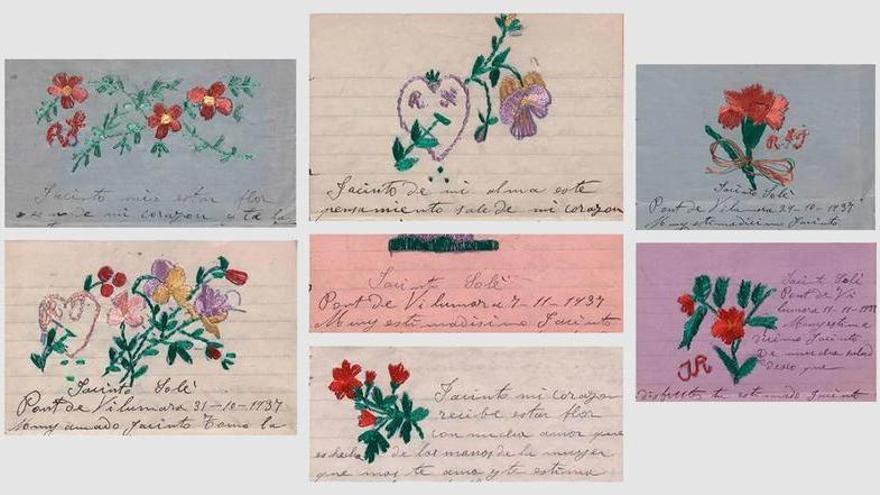 R J
Jacinto mis estar flor
de mi corazon y ta la
R J
Jacinto de mi alma este
pensamiento sale de mi corazon
R J
Jacinto Solé
Pont de Vilumara 24-10-1937
Muy estimadisimo Jacinto
R J
Jacinto Solé
Pont de Vilumara 31-10-1937
Muy amado Jacinto Tomo la
Jacinto Solé
Pont de Vilumara 7-11-1937
Muy estimadisimo Jacinto
Jacinto mi corazon
recibe estar flor
con mucha amor que
es hecha de los manos de la mujer
que mas te ama y te estima
Jacinto Solé
Pont de Vi
lumara 11-11-1937
Muy estima
disimo Jacinto
De mucha salud
deseo que
JR
disfrutes tu estimado Jacinto